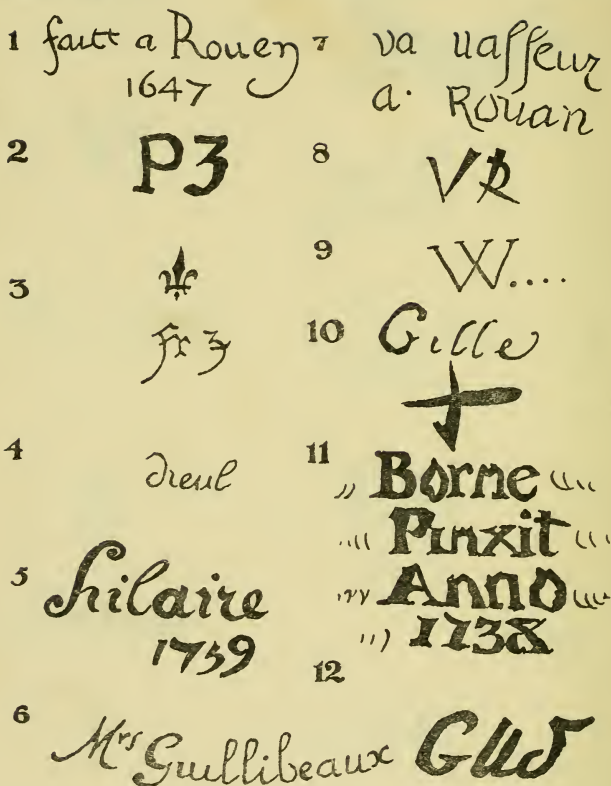 1 faitt a Rouen
1647
2 P3
3
fr 3
4 dieul
5 hilaire
1759
6 Mrs Guillibeaux
7 va uasseur
a. Rouan
8 VR
9 W....
10 Gille
11 „ Borne
Pinxit
Anno
1738
12 GUS